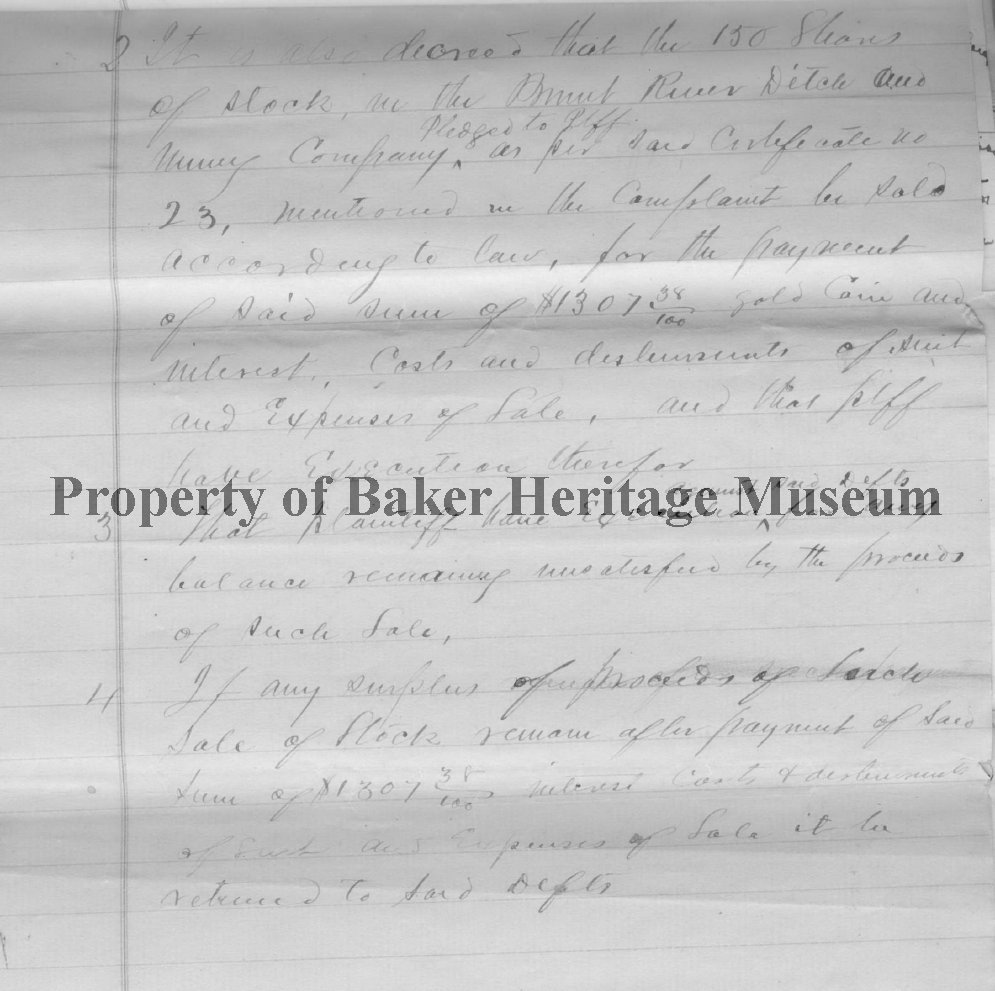 2 It is also decreed that the 150 Shares
of stock, in the Burnt River Ditch and
Pledged to Plff.
Mining Company, ^ as per said Certificate no
23, mentioned in the Complaint be sold
according to law, for the payment
of said sum of $1307 38/100 gold Coin and
interest, Costs and disbursments of suit
and Expenses of Sale, and that plff
have Execution therefor
Property of Baker Heritage Museum
against said Defts
3 That plaintiff have Execution ^ for any
balance remaining unsatisfied by the proceeds
of such Sale,
4 If any surplus of proceeds of Such
Sale of Stock remain after payment of said
sum of $1307 38/100 interest costs & disbursments
of Suit and Expenses of Sale it be
returned to said Defts